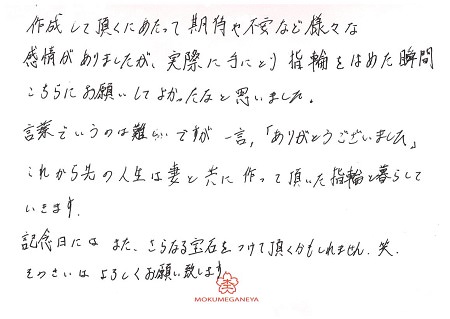 作成して頂くにあたって期待や不安など様々な
感情がありましたが、実際に手にとり指輪をはめた瞬間
こちらにお願いしてよかったなと思いました。
言葉でいうのは難しいですが一言,「ありがとうございました」
これから先の人生は妻と共に作って頂いた指輪と暮らして
いきます.
記念日には また、さらなる宝石をつけて頂くかもしれません.笑.
そのさいは よろしくお願い致します
MOKUMEGANEYA